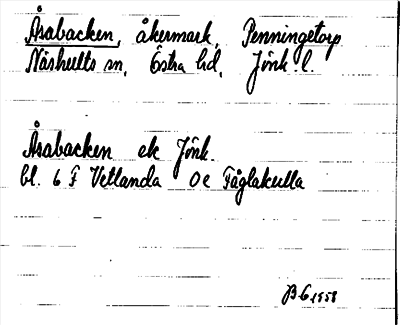 Åsabacken, åkermark, Penningetorp
Näshults sn, Östra hd, Jönk l.
Åsabacken ek Jönk.
bl. 6 F Vetlanda Oc Fåglakulla
B G 1958